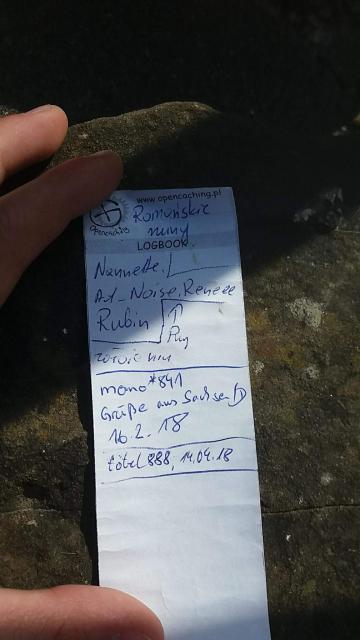 www.opencaching.pl
opencaching
Romuńskie
ruiny
LOGBOOK
Nannette,
Art_Noise, Reneee
Rubin
mono*841
Grüße aus Sachsen D
16.2.18
tótel 888, 14.04.18